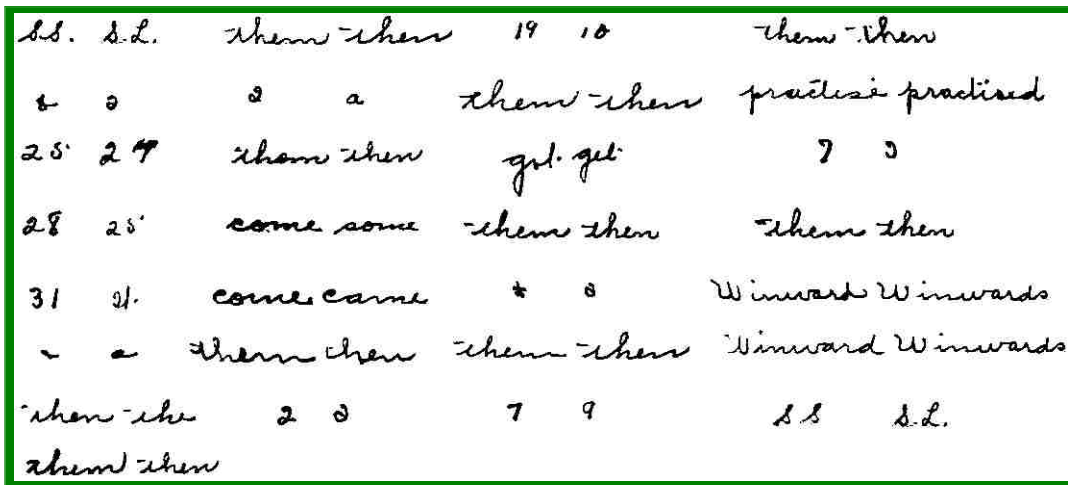 S.S. S.L. them then 19 18 them then
2 a them then practise practised
25 24 them then got get 7 9
28 25 come some them then them then
31 21. come came Winward Winwards
them then them then Winward Winwards
then the 2 2 7 9 S S S.L.
them then